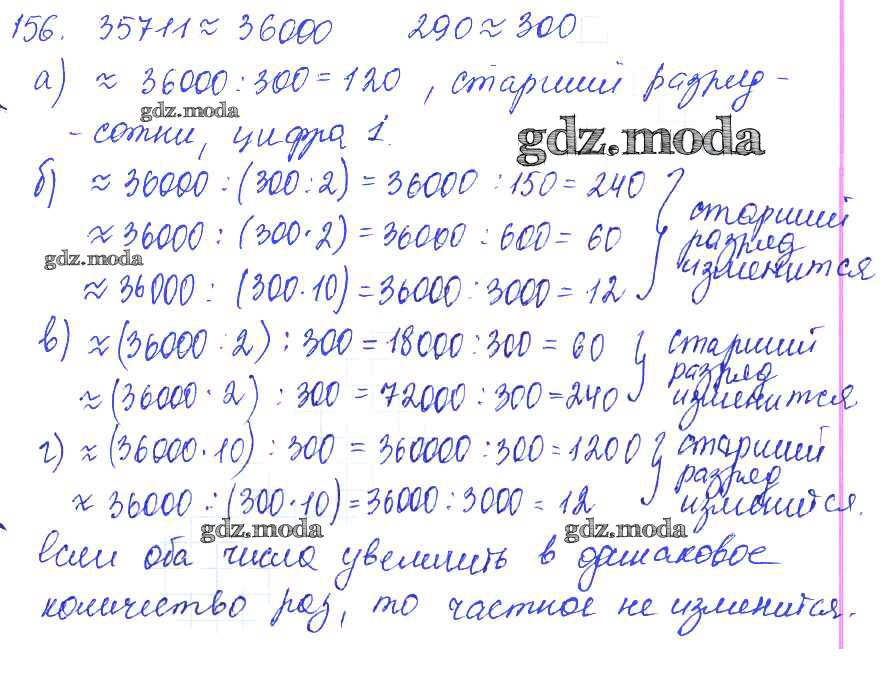 156. 35711 ≈ 36000 290 ≈ 300
а) ≈ 36000 : 300 = 120, старший разряд -
gdz.moda
- сотни, цифра 1.
gdz.moda
б) ≈ 36000 : (300 : 2) = 36000 : 150 = 240
≈ 36000 : (300 · 2) = 36000 : 600 = 60
старший
разряд
изменится
gdz.moda
≈ 36000 : (300 · 10) = 36000 : 3000 = 12
в) ≈ (36000 : 2) : 300 = 18000 : 300 = 60
≈ (36000 · 2) : 300 = 72000 : 300 = 240
старший
разряд
изменится
г) ≈ (36000 · 10) : 300 = 360000 : 300 = 1200
≈ 36000 : (300 · 10) = 36000 : 3000 = 12
старший
разряд
изменится.
gdz.moda gdz.moda
Если оба числа увеличить в одинаковое
количество раз, то частное не изменится.